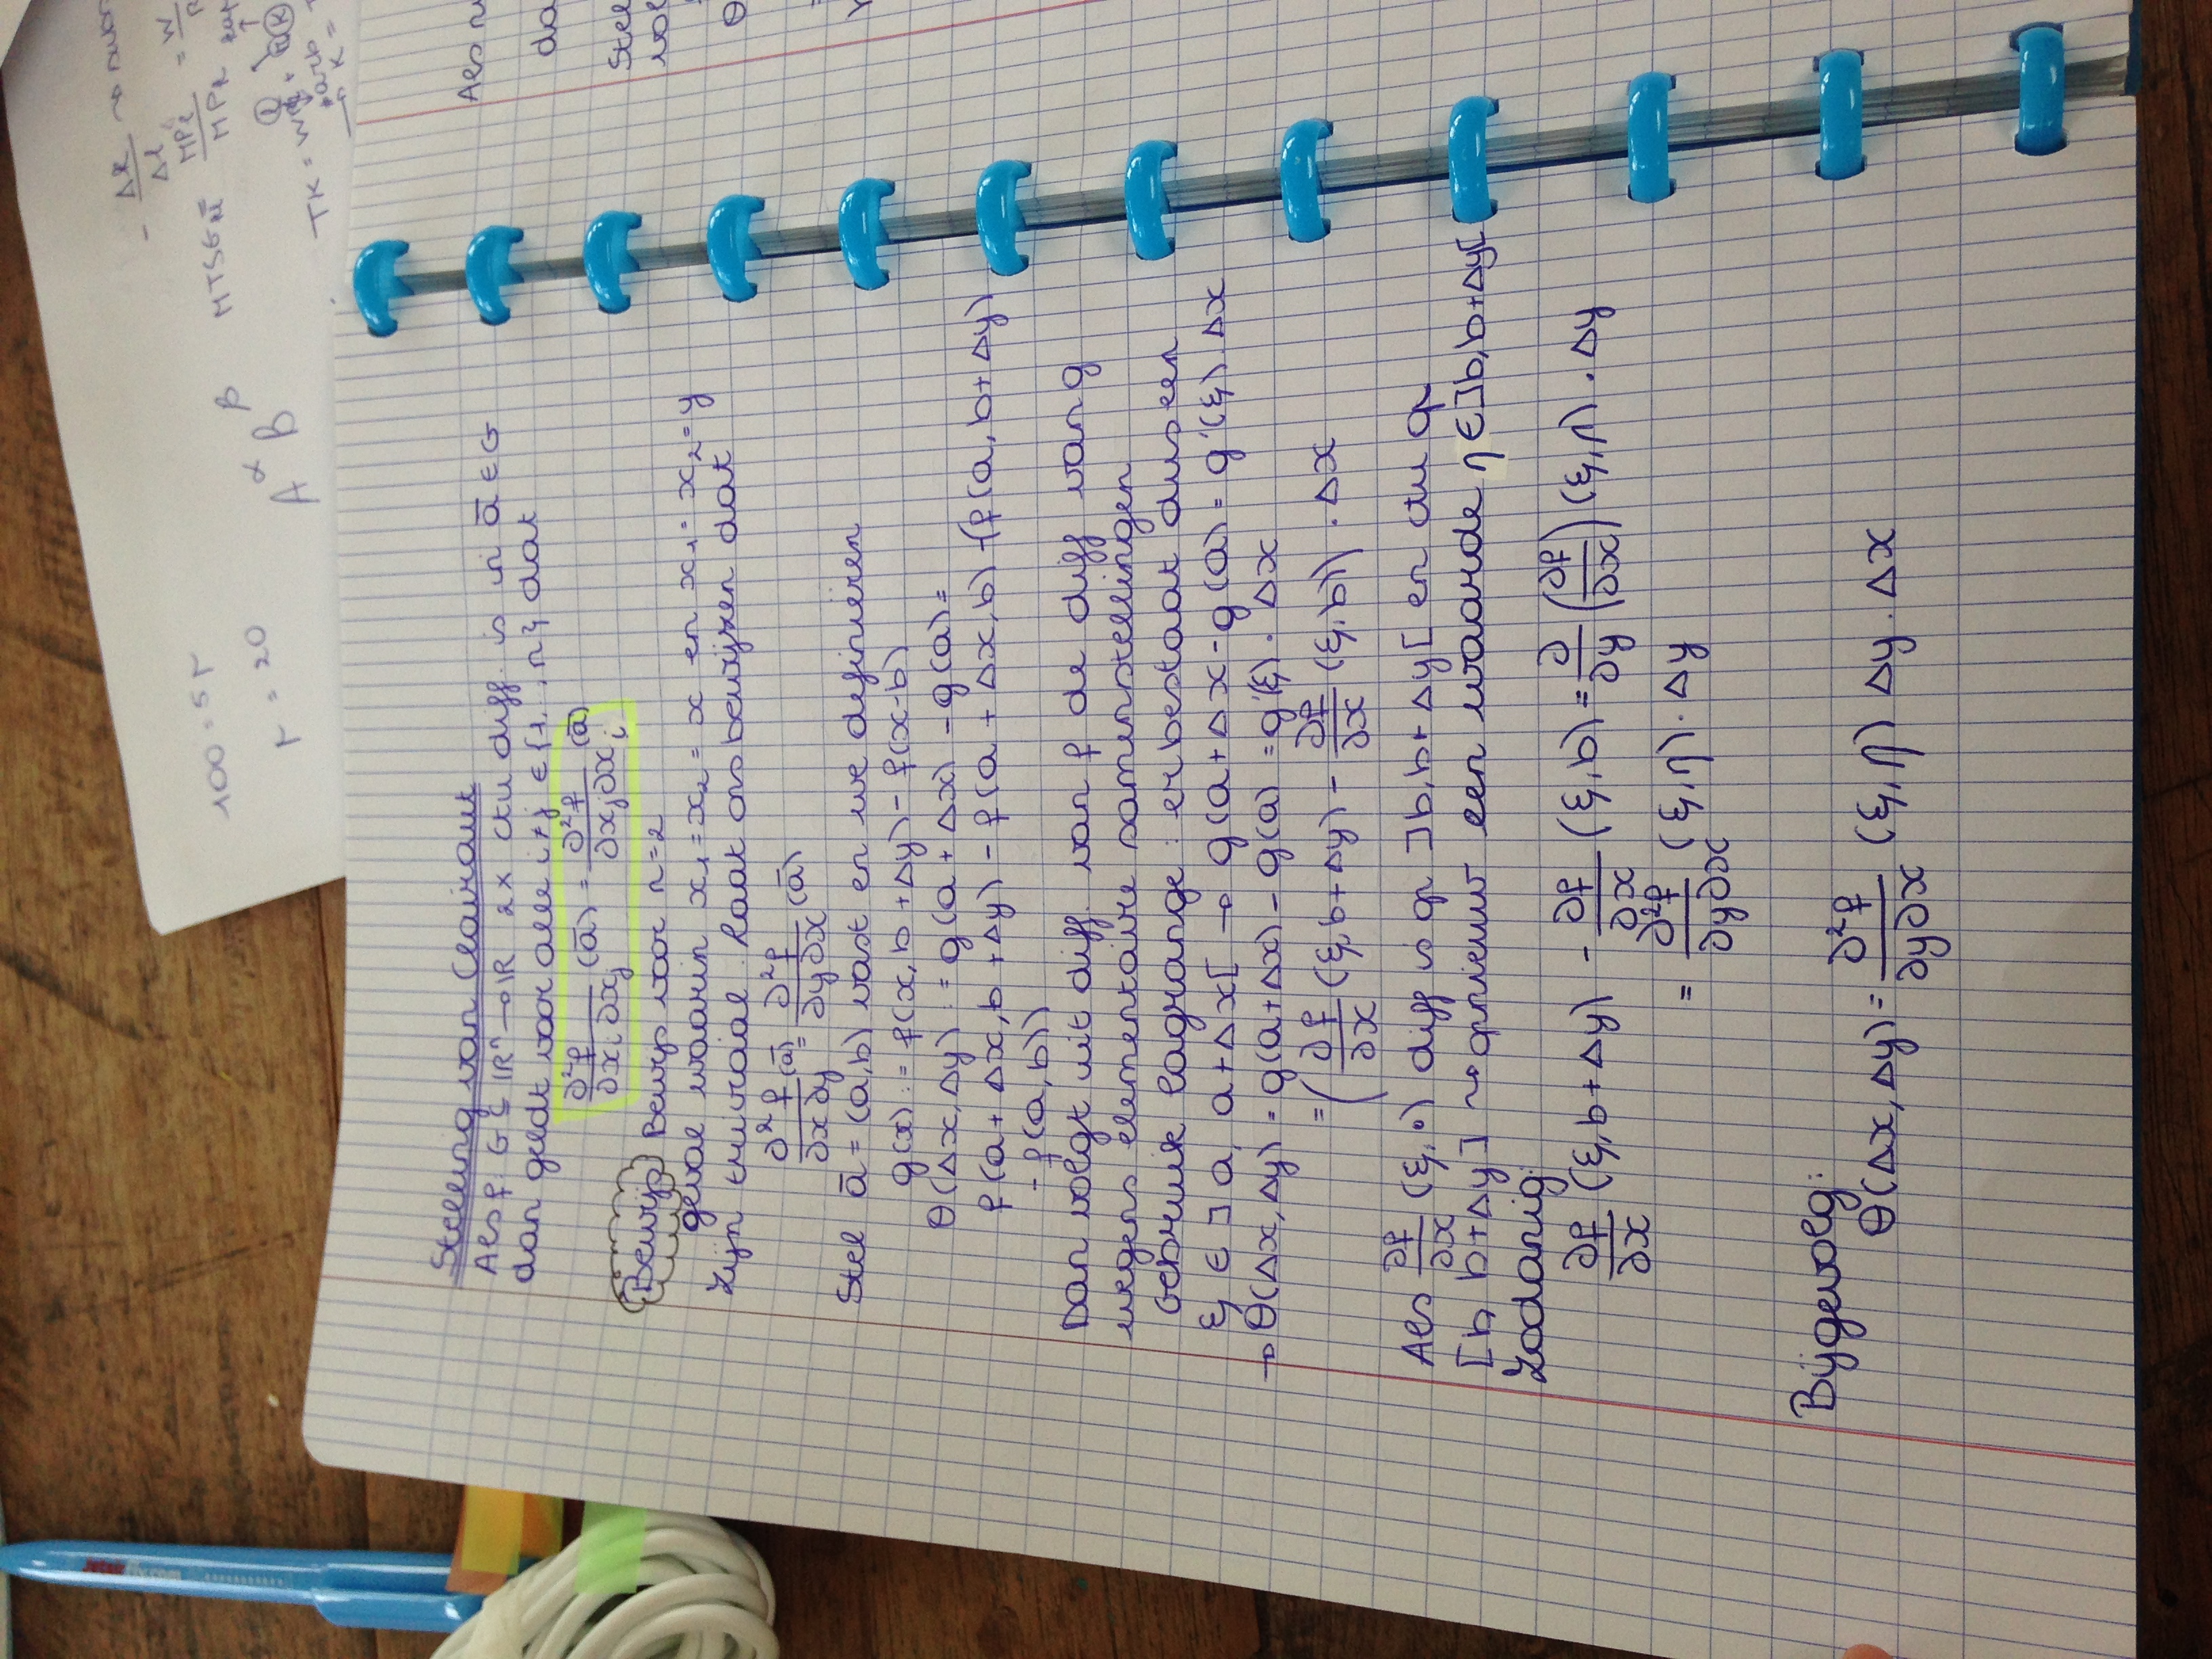 Stelling van Clairaut
Als f: G ⊆ ℝⁿ → ℝ 2x ctu diff. is in ā ∈ G
dan geldt voor alle i ≠ j ∈ {1...n} dat
∂²f/∂xᵢ∂xⱼ (ā) = ∂²f/∂xⱼ∂xᵢ (ā)
Bewijs Bewijs voor n=2
geval waarin x₁ = x₂ = x en x₁ = x₂ = y
zijn triviaal. Laat ons bewijzen dat
∂²f/∂x∂y (ā) = ∂²f/∂y∂x (ā)
Stel ā = (a,b) vast en we definiëren
g(x) := f(x, b+Δy) - f(x-b)
θ(Δx, Δy) := g(a+Δx) - g(a) =
f(a+Δx, b+Δy) - f(a+Δx, b) - (f(a, b+Δy)
- f(a,b))
Dan volgt uit diff. van f de diff van g
wegens elementaire samenstellingen
Gebruik Lagrange: er bestaat dus een
ξ ∈ ]a, a+Δx[ → g(a+Δx - g(a) = g'(ξ).Δx
→ θ(Δx, Δy) = g(a+Δx) - g(a) = g'(ξ). Δx
= (∂f/∂x (ξ, b+Δy) - ∂f/∂x (ξ, b)) . Δx
Als ∂f/∂x (ξ, •) diff is op ]b, b+Δy[ en ctu op
[b, b+Δy] ~> opnieuw een waarde η ∈ ]b, b+Δy[
Zodanig:
∂f/∂x (ξ, b+Δy) - ∂f/∂x (ξ, b) = ∂/∂y (∂f/∂x) (ξ, η) . Δy
= ∂²f/∂y∂x (ξ, η) . Δy
Bijgevolg:
θ(Δx, Δy) = ∂²f/∂y∂x (ξ, η) Δy. Δx
100 = 5r
r = 20
A^α B^β
MPL
Als
Stel